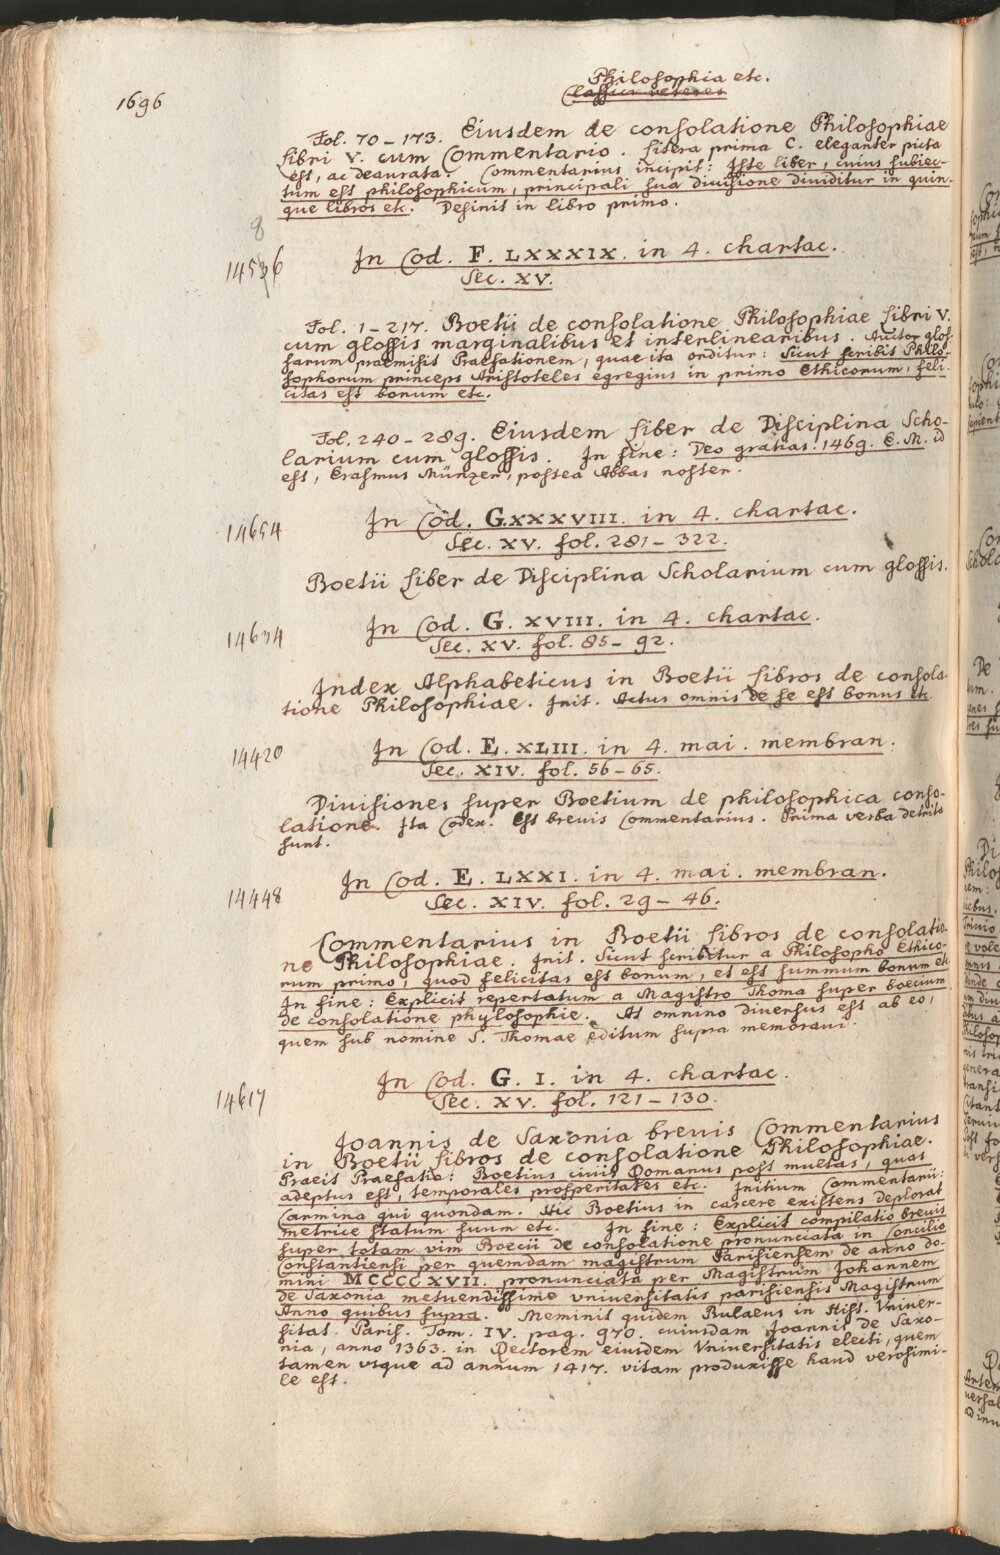 1696
Philosophia etc.
Classici veteres
Fol. 70 – 173. Eiusdem de consolatione Philosophiae
Libri V. cum Commentario. Litera prima C. eleganter picta
est, ac deaurata. Commentarius incipit: Iste liber, cuius subiec-
tum est philosophicum, principali sua divisione dividitur in quin-
que libros etc. Desinit in libro primo.
8
14536
In Cod. F. LXXXIX. in 4. chartac.
Sec. XV.
Fol. 1 – 217. Boetii de consolatione Philosophiae Libri V.
cum glossis marginalibus et interlinearibus. Auctor glos-
sarum praemisit Praefationem, quae ita orditur: Sicut scribit Philo-
sophorum princeps Aristoteles egregius in primo Ethicorum, feli-
citas est bonum etc.
Fol. 240 – 289. Eiusdem Liber de Disciplina Scho-
larium cum glossis. In fine: Deo gratias. 1469. E. M. id
est, Erasmus Münzer, postea Abbas noster.
14654
In Cod. G.XXXVIII. in 4. chartac.
Sec. XV. fol. 281 – 322.
Boetii Liber de Disciplina Scholarium cum glossis.
14634
In Cod. G. XVIII. in 4. chartac.
Sec. XV. fol. 85 – 92.
Index Alphabeticus in Boetii Libros de consola-
tione Philosophiae. Init. Actus omnis de se est bonus etc.
14420
In Cod. E. XLIII. in 4. mai. membran.
Sec. XIV. fol. 56 – 65.
Divisiones super Boetium de philosophica conso-
latione. Ita Codex. Est brevis Commentarius. Prima verba detrita
sunt.
14448
In Cod. E. LXXI. in 4. mai. membran.
Sec. XIV. fol. 29 – 46.
Commentarius in Boetii Libros de consolatio-
ne Philosophiae. Init. Sicut scribitur a Philosopho Ethico-
rum primo, quod felicitas est bonum, et est summum bonum etc.
In fine: Explicit reportatum a Magistro Thoma super boecium
de consolatione phylosophie. At omnino diversus est ab eo,
quem sub nomine S. Thomae editum supra memoravi.
14617
In Cod. G. I. in 4. chartac.
Sec. XV. fol. 121 – 130.
Joannis de Saxonia brevis Commentarius
in Boetii Libros de consolatione Philosophiae.
Praeit Praefatio: Boetius civis Romanus post multas, quas
adeptus est, temporales prosperitates etc. Initium Commentarii:
Carmina qui quondam. Hic Boetius in carcere existens deplorat
metrice statum suum etc. In fine: Explicit compilatio brevis
super totam vim Boecii de consolatione pronunciata in Concilio
Constantiensi per quemdam magistrum Parisiensem de anno do-
mini MCCCCXVII. pronunciata per Magistrum Johannem
de Saxonia metuendissime vniversitatis parisiensis Magistrum
Anno quibus supra. Meminit quidem Bulaeus in Hist. Vniver-
sitat. Paris. Tom. IV. pag. 970. cuiusdam Joannis de Saxo-
nia, anno 1363. in Rectorem eiusdem Vniversitatis electi, quem
tamen vsque ad annum 1417. vitam produxisse haud verosimi-
le est.